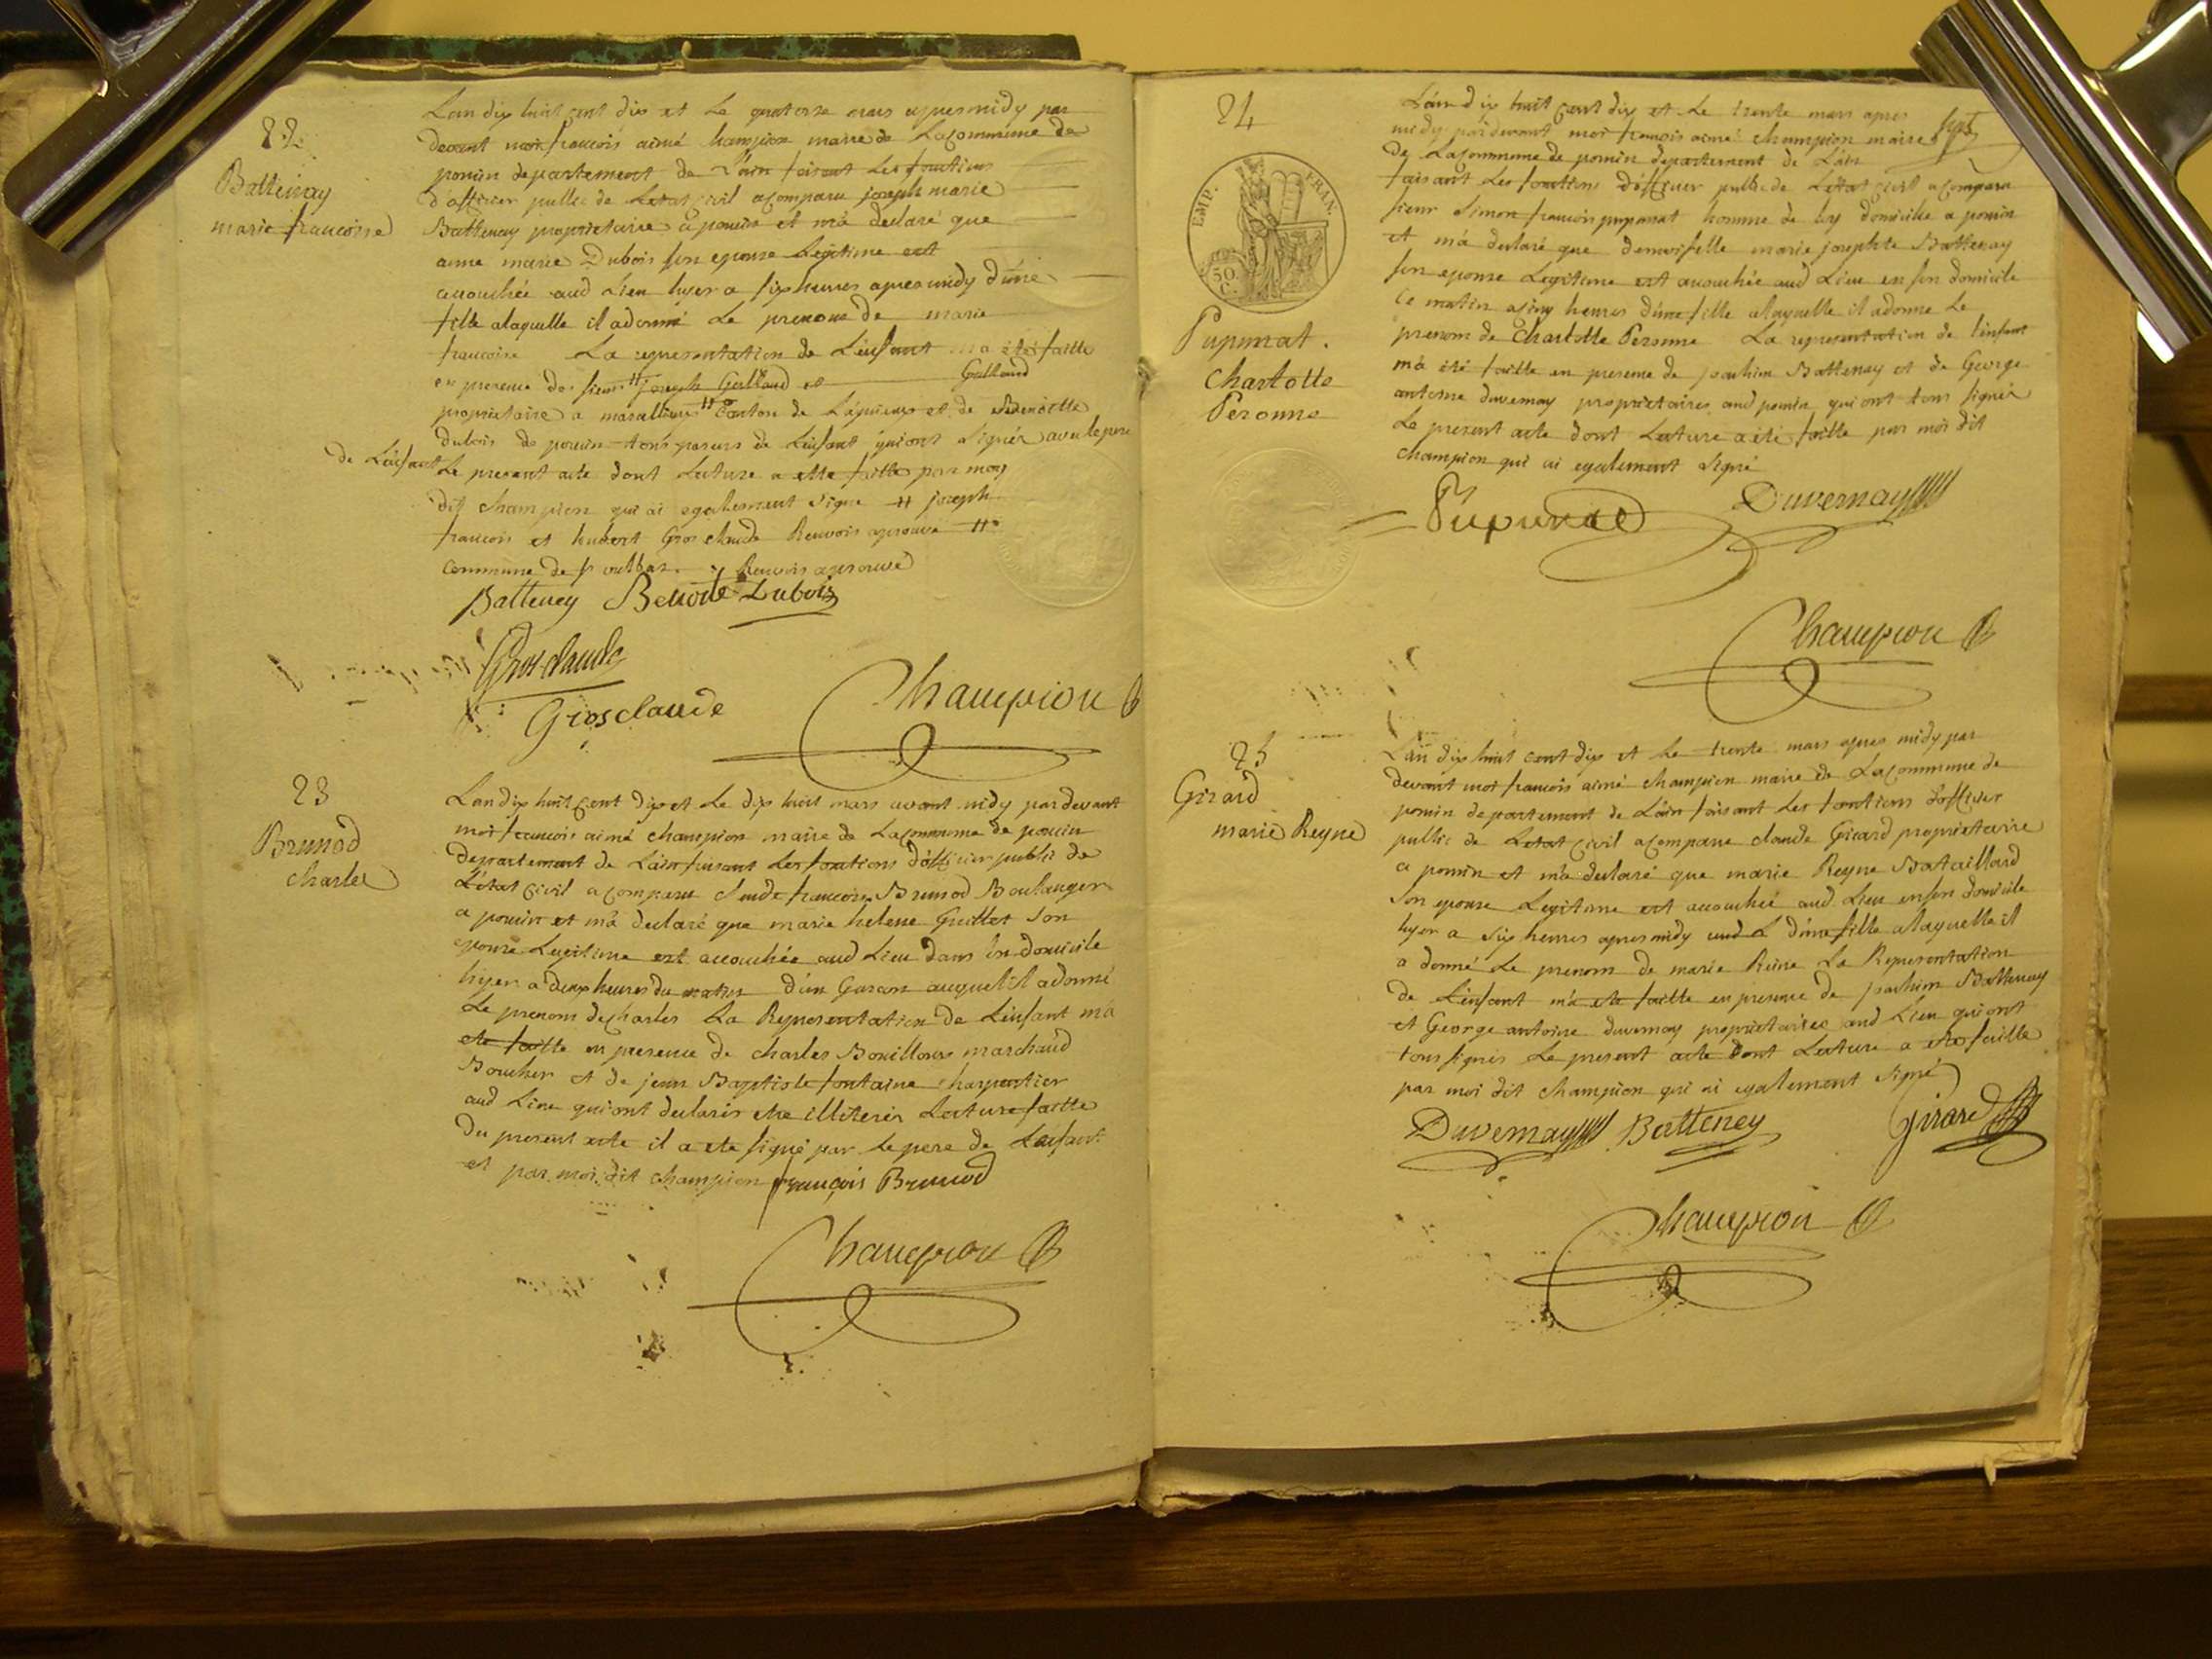 22
Battenay
marie francoise
Lan dix huit cent dix et le quatorze mars apres midy par
devant moi francois aimé champion maire de La commune de
poncin departement de l'ain faisant Les fonctions
d'officier public de Letat civil a comparu joseph marie
Battenay proprietaire a poncin et m'a declaré que
anne marie Dubois son epouse Legitime est
accouchée aud Lieu hyer a six heures apres midy d'une
fille alaquelle il a donné Le prenom de marie
francoise La representation de L'enfant m'a été faitte
en presence des sieurs # joseph Galland et Galland
proprietaire a # canton de Lagnieux et de Benoitte
dubois de poncin tous parens de L'enfant qui ont signés avec le pere
de L'enfant Le present acte dont Lecture a ette faitte par moy
dit champion qui ai egalement signe # joseph
francois et hubert Gros claude Renvois aprouvé #
commune de st vulbas. Renvois aprouvé
Batteney Benoite Dubois
Grosclaude
Grosclaude
Champion
23
Brunod
charles
Lan dix huit cent dix et Le dix huit mars avant midy par devant
moi francois aimé champion maire de La commune de poncin
departement de L'ain faisant Les fonctions d'officier public de
L'état civil a comparu claude francois Brunod Boulanger
a poncin et m'a declaré que marie helene Guillet son
epouse Legitime est accouchée aud Lieu dans son domicile
hyer a deux heures du matin d'un Garcon auquel il a donné
Le prenom de charles La Representation de L'enfant m'a
ete faitte en presence de charles Bouilloux marchand
Boucher et de jean Baptiste fontaine charpentier
aud Lieu qui ont declarés etre illiterés Lecture faitte
du present acte il a ete signé par Le pere de L'enfant
et par moi dit champion françois Brunod
Champion
24
EMP. FRAN.
50 C.
Pupunat.
Charlotte
Peronne
L'an dix huit cent dix et Le trente mars apres
midy par devant moi francois aimé champion maire
de La commune de poncin departement de L'ain
faisant Les fonctions d'officier public de L'état civil a comparu
sieur simon francois pupunat homme de loy domicilié a poncin
et m'a declaré que demoiselle marie josephte Battenay
son epouse Legitime est accouchée aud Lieu en son domicile
ce matin a cinq heures d'une fille alaquelle il a donne Le
prenom de Charlotte Peronne La representation de l'enfant
m'a été faitte en presence de joachim Battenay et de George
antoine duvernay proprietaires aud poncin qui ont tous signés
Le present acte dont Lecture a été faitte par moi dit
champion qui ai egalement signé
Pupunat Duvernay
Champion
25
Girard
marie Reyne
L'an dix huit cent dix et Le trente mars apres midy par
devant moi francois aimé champion maire de La commune de
poncin departement de L'ain faisant Les fonctions d'officier
public de Letat civil a comparu claude Girard proprietaire
a poncin et m'a declaré que marie Reyne Bataillard
son epouse Legitime est accouchée aud Lieu en son domicile
hyer a six heures apres midy d'une fille alaquelle il
a donné Le prenom de marie Reine La Representation
de L'enfant m'a ete faitte en presence de joachim Battenay
et George antoine duvernay proprietaires aud Lieu qui ont
tous signés Le present acte dont Lecture a ete faitte
par moi dit champion qui ai egalement signé
Duvernay Batteney Girard
Champion